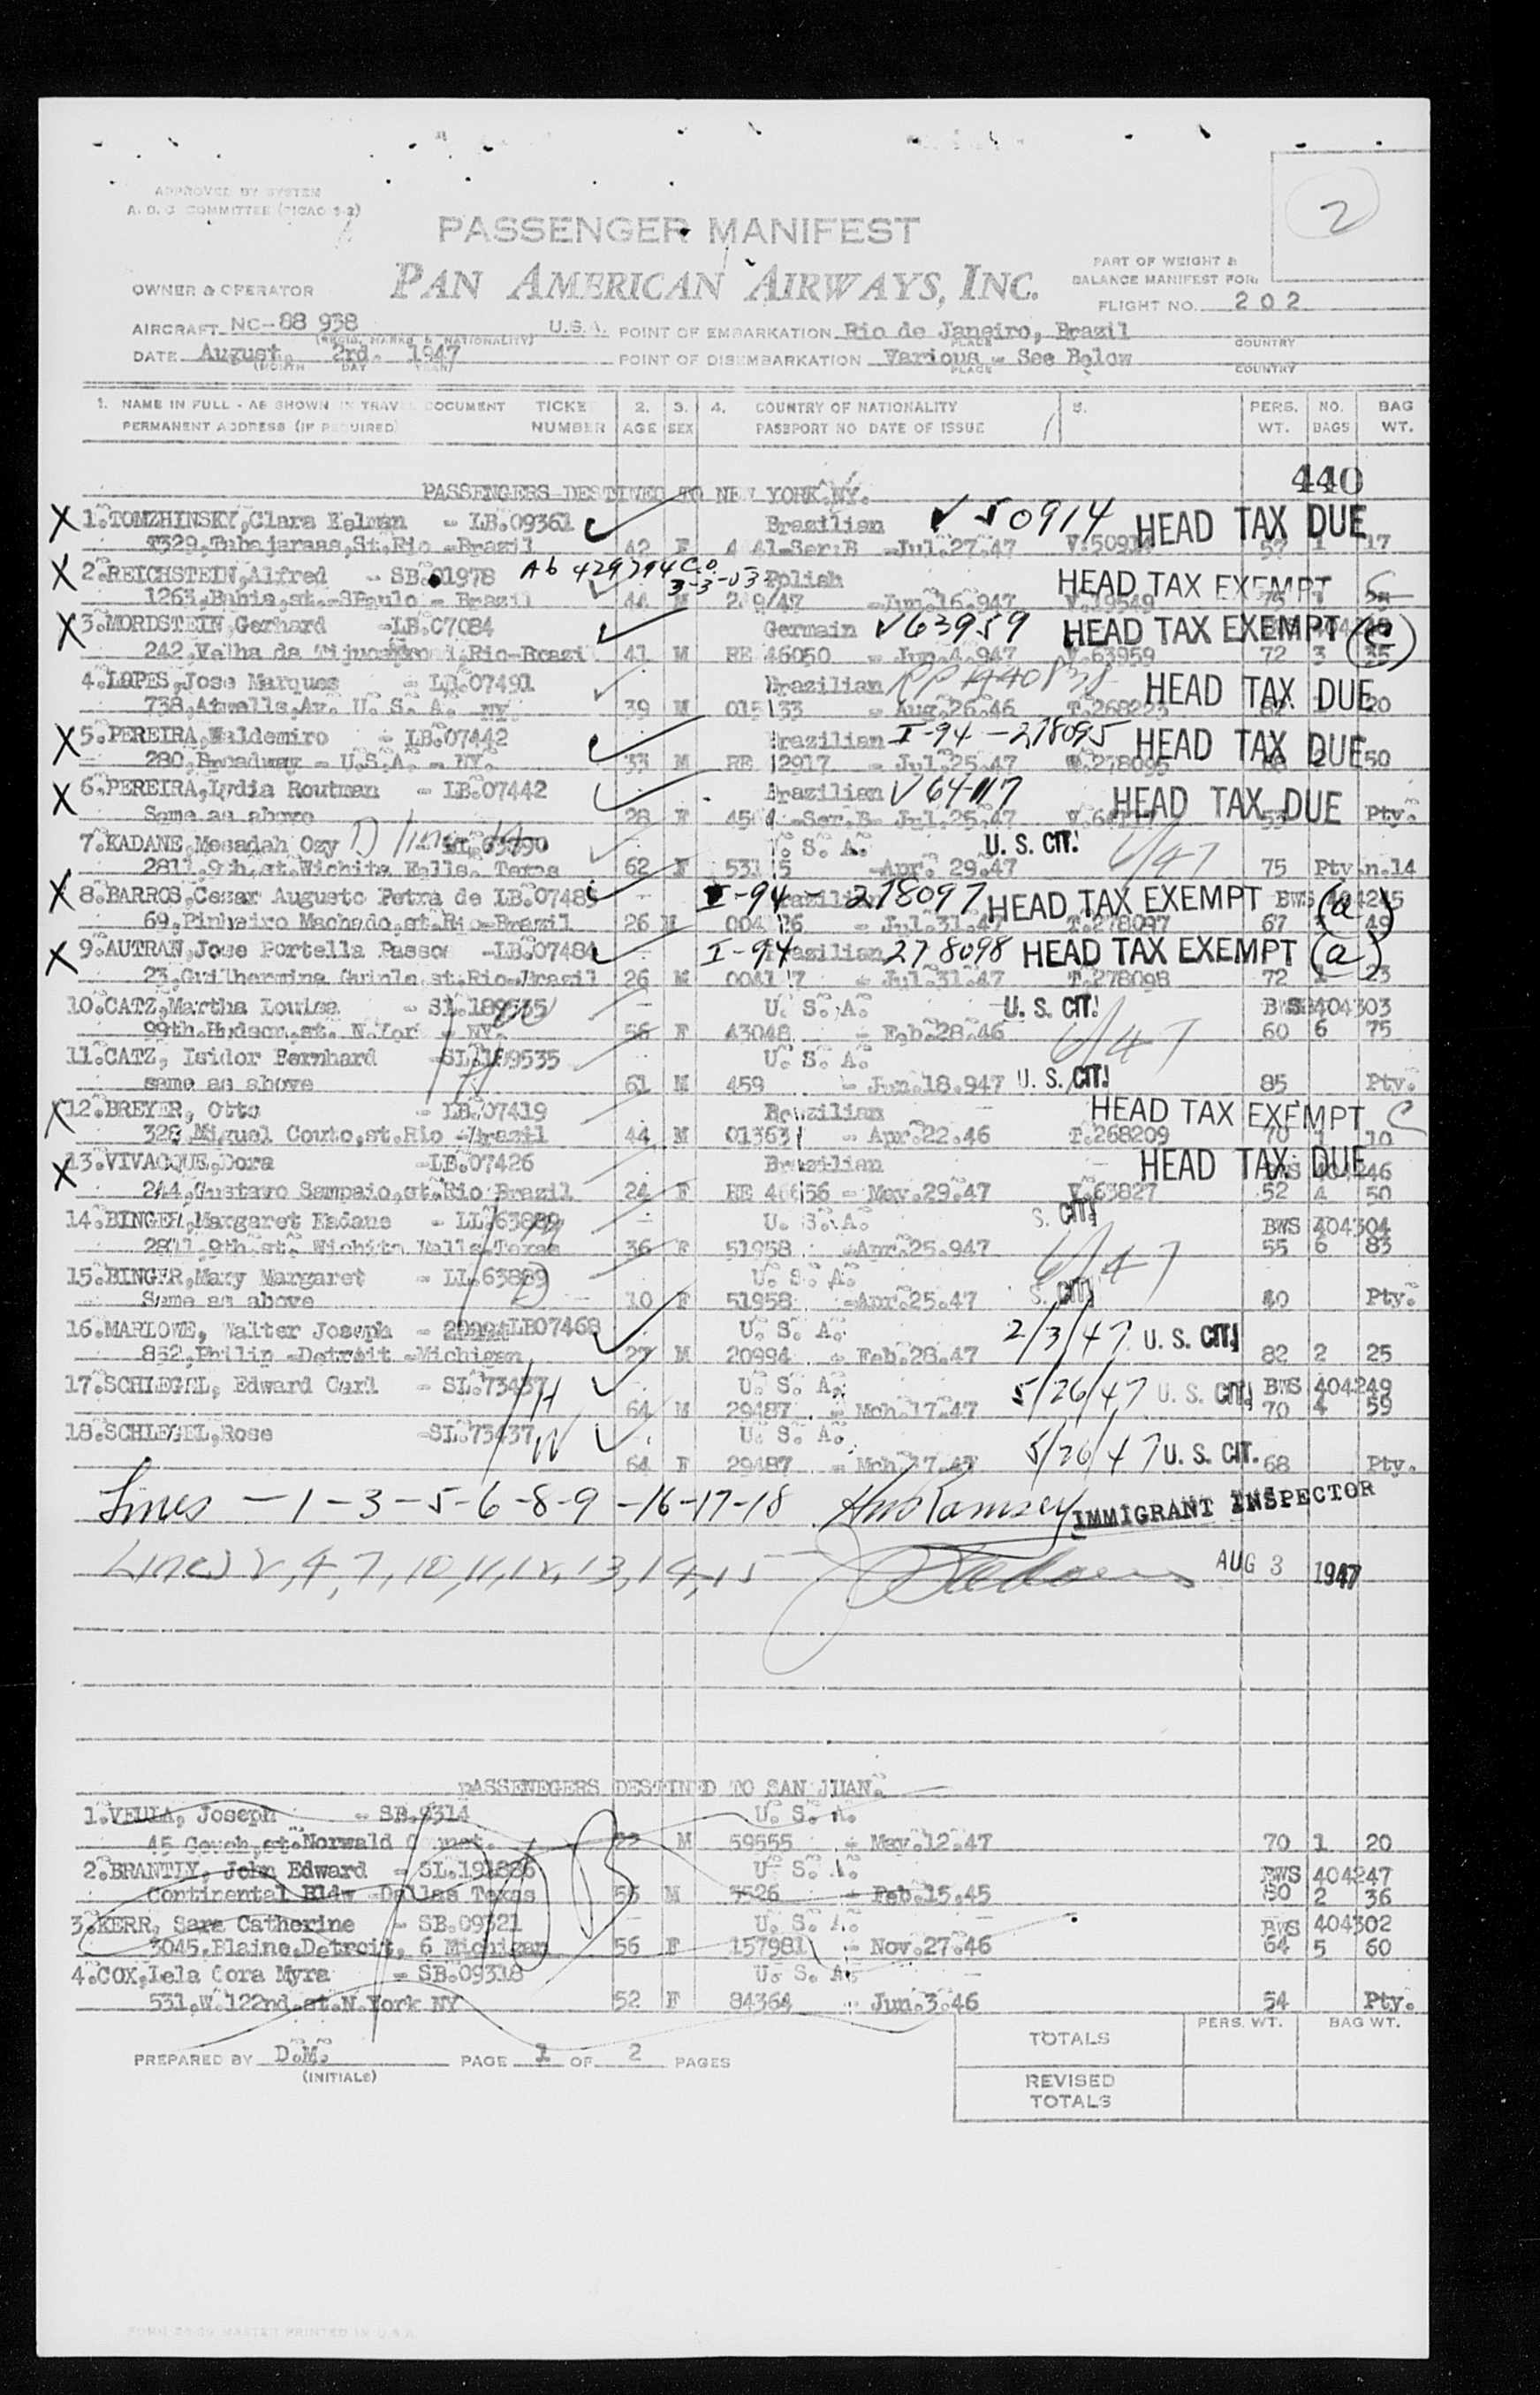 APPROVED BY SYSTEM
A. D. C. COMMITTEE (PICAO 9-2)
2
PASSENGER MANIFEST
PAN AMERICAN AIRWAYS, INC.
PART OF WEIGHT &
BALANCE MANIFEST FOR:
OWNER & OPERATOR
FLIGHT NO. 202
AIRCRAFT NC-88 938 U.S.A. POINT OF EMBARKATION Rio de Janeiro, Brazil
(REGIS. MARKS & NATIONALITY) PLACE COUNTRY
DATE August, 2rd. 1947 POINT OF DISEMBARKATION Various - See Below
(MONTH DAY YEAR) PLACE COUNTRY
1. NAME IN FULL - AS SHOWN IN TRAVEL DOCUMENT TICKET 2. 3. 4. COUNTRY OF NATIONALITY 5. PERS. NO. BAG
PERMANENT ADDRESS (IF REQUIRED) NUMBER AGE SEX PASSPORT NO DATE OF ISSUE WT. BAGS WT.
440
PASSENGERS DESTINED TO NEW YORK.NY.
X 1.TOMZHINSKY,Clara Kelman - LB.09361 Brazilian V 50914 HEAD TAX DUE
St.Rio -Brazil 42 F -Ser.B -Jul.27.47 57 1 17
X 2.REICHSTEIN,Alfred - SB.01978 Ab 429794 C.O. 3-3-03 Polish HEAD TAX EXEMPT
1263,Bahia,st.-SPaulo - Brazil 44 M -Jun.16.947 V.19549
X 3.MORDSTEIN,Gerhard -LB.07084 Germain V63959 HEAD TAX EXEMPT (C)
242,Velha da Rio-Brazil 41 M RE 46050 - Jun.4.947 V.63959 72 3 35
4.LOPES,Jose Marques - LB.07491 Brazilian HEAD TAX DUE
738, Av. U. S. A. NY. 39 M - Aug.26.46 T.268223 20
X 5.PEREIRA,Waldemiro - LB.07442 Brazilian I-94 -278095 HEAD TAX DUE
280,Broadway - U.S.A. - NY. 33 M RE 12917 - Jul.25.47 278095 2 50
X 6.PEREIRA,Lydia Routman - LB.07442 Brazilian HEAD TAX DUE
Same as above 28 F -Ser.B- Jul.25.47 53 Pty.
7.KADANE,Mesadah Ozy U. S. A. U. S. CIT.
2811.9th.st.Wichita Falls. Texas 62 F -Apr. 29.47 75 Pty n.14
X 8.BARROS,Cesar Augusto Petra de LB.07485 I-94 - 278097 HEAD TAX EXEMPT (a)
69,Pinheiro Machado,st.Rio-Brazil 26 M - Jul.31.47 T.278097 67 49
X 9.AUTRAN,Jose Portella Passos -LB.07484 I-94 Brazilian 278098 HEAD TAX EXEMPT (a)
23,Guilhermina Guinle st.Rio-Brazil 26 M - Jul.31.47 T.278098 72 1 23
10.CATZ,Martha Louisa - U. S. A. U. S. CIT. 404303
99th.Hudson.st. N.York - NY. 56 F 43048 - Feb.28.46 60 6 75
11.CATZ, Isidor Bernhard U. S. A.
same as above 61 M 459 - Jun.18.947 U. S. CIT. 85 Pty.
X 12.BREYER, Otto - LB.07419 Brazilian HEAD TAX EXEMPT C
328 Miguel Couto,st.Rio -Brazil 44 M - Apr.22.46 T.268209 70 1 10
X 13.VIVACQUE,Dora -LB.07426 Brazilian HEAD TAX DUE
244,Gustavo Sampaio,st.Rio Brazil 24 F - May.29.47 V.63827 52 4 50
14.BINGER,Margaret Kadane - LL.63889 U. S. A. S. CIT. BWS 404304
2811.9th.st. Wichita Falls.Texas 36 F 51958 -Apr.25.947 55 6 83
15.BINGER,Mary Margaret - LL.63889 U. S. A.
Same as above 10 F 51958 -Apr.25.47 S. CIT. 40 Pty.
16.MARLOWE, Walter Joseph - LB07468 U. S. A. 2/3/47 U. S. CIT.
852,Philip -Detroit -Michigan 27 M 20994 - Feb.28.47 82 2 25
17.SCHLEGEL, Edward Carl - SL.73437 H U. S. A. 5/26/47 U. S. CIT. BWS 404249
64 M 29487 - Mch.17.47 70 4 59
18.SCHLEGEL,Rose -SL.73437 W U. S. A. 5/26/47 U. S. CIT.
64 F 29487 - Mch.17.47 68 Pty.
Lines - 1 - 3 - 5 - 6 - 8 - 9 - 16 - 17 - 18 Ramsey IMMIGRANT INSPECTOR
Lines 2, 4, 7, 10, 11, 12, 13, 14, 15 AUG 3 1947
PASSENEGERS DESTINED TO SAN JUAN.
1.VEULA, Joseph - SB.9314 U. S. A.
45 st.Norwald 22 M 59555 - May.12.47 70 1 20
2.BRANTLY, John Edward - SL.191826 U S. A. BWS 404247
Continental Bldw -Dallas Texas M - Feb.15.45 80 2 36
3.KERR, Sara Catherine - SB.09321 U. S. A. BWS 404302
3045.Blaine.Detroit, 6 Michigan 56 F 157981 - Nov.27.46 64 5 60
4.COX,Lela Cora Myra - SB.09318 U. S. A.
531.W.122nd.st.N.York NY 52 F 84364 - Jun.3.46 54 Pty.
PREPARED BY D.M. PAGE 1 OF 2 PAGES
(INITIALS)
PERS. WT. BAG WT.
TOTALS
REVISED
TOTALS